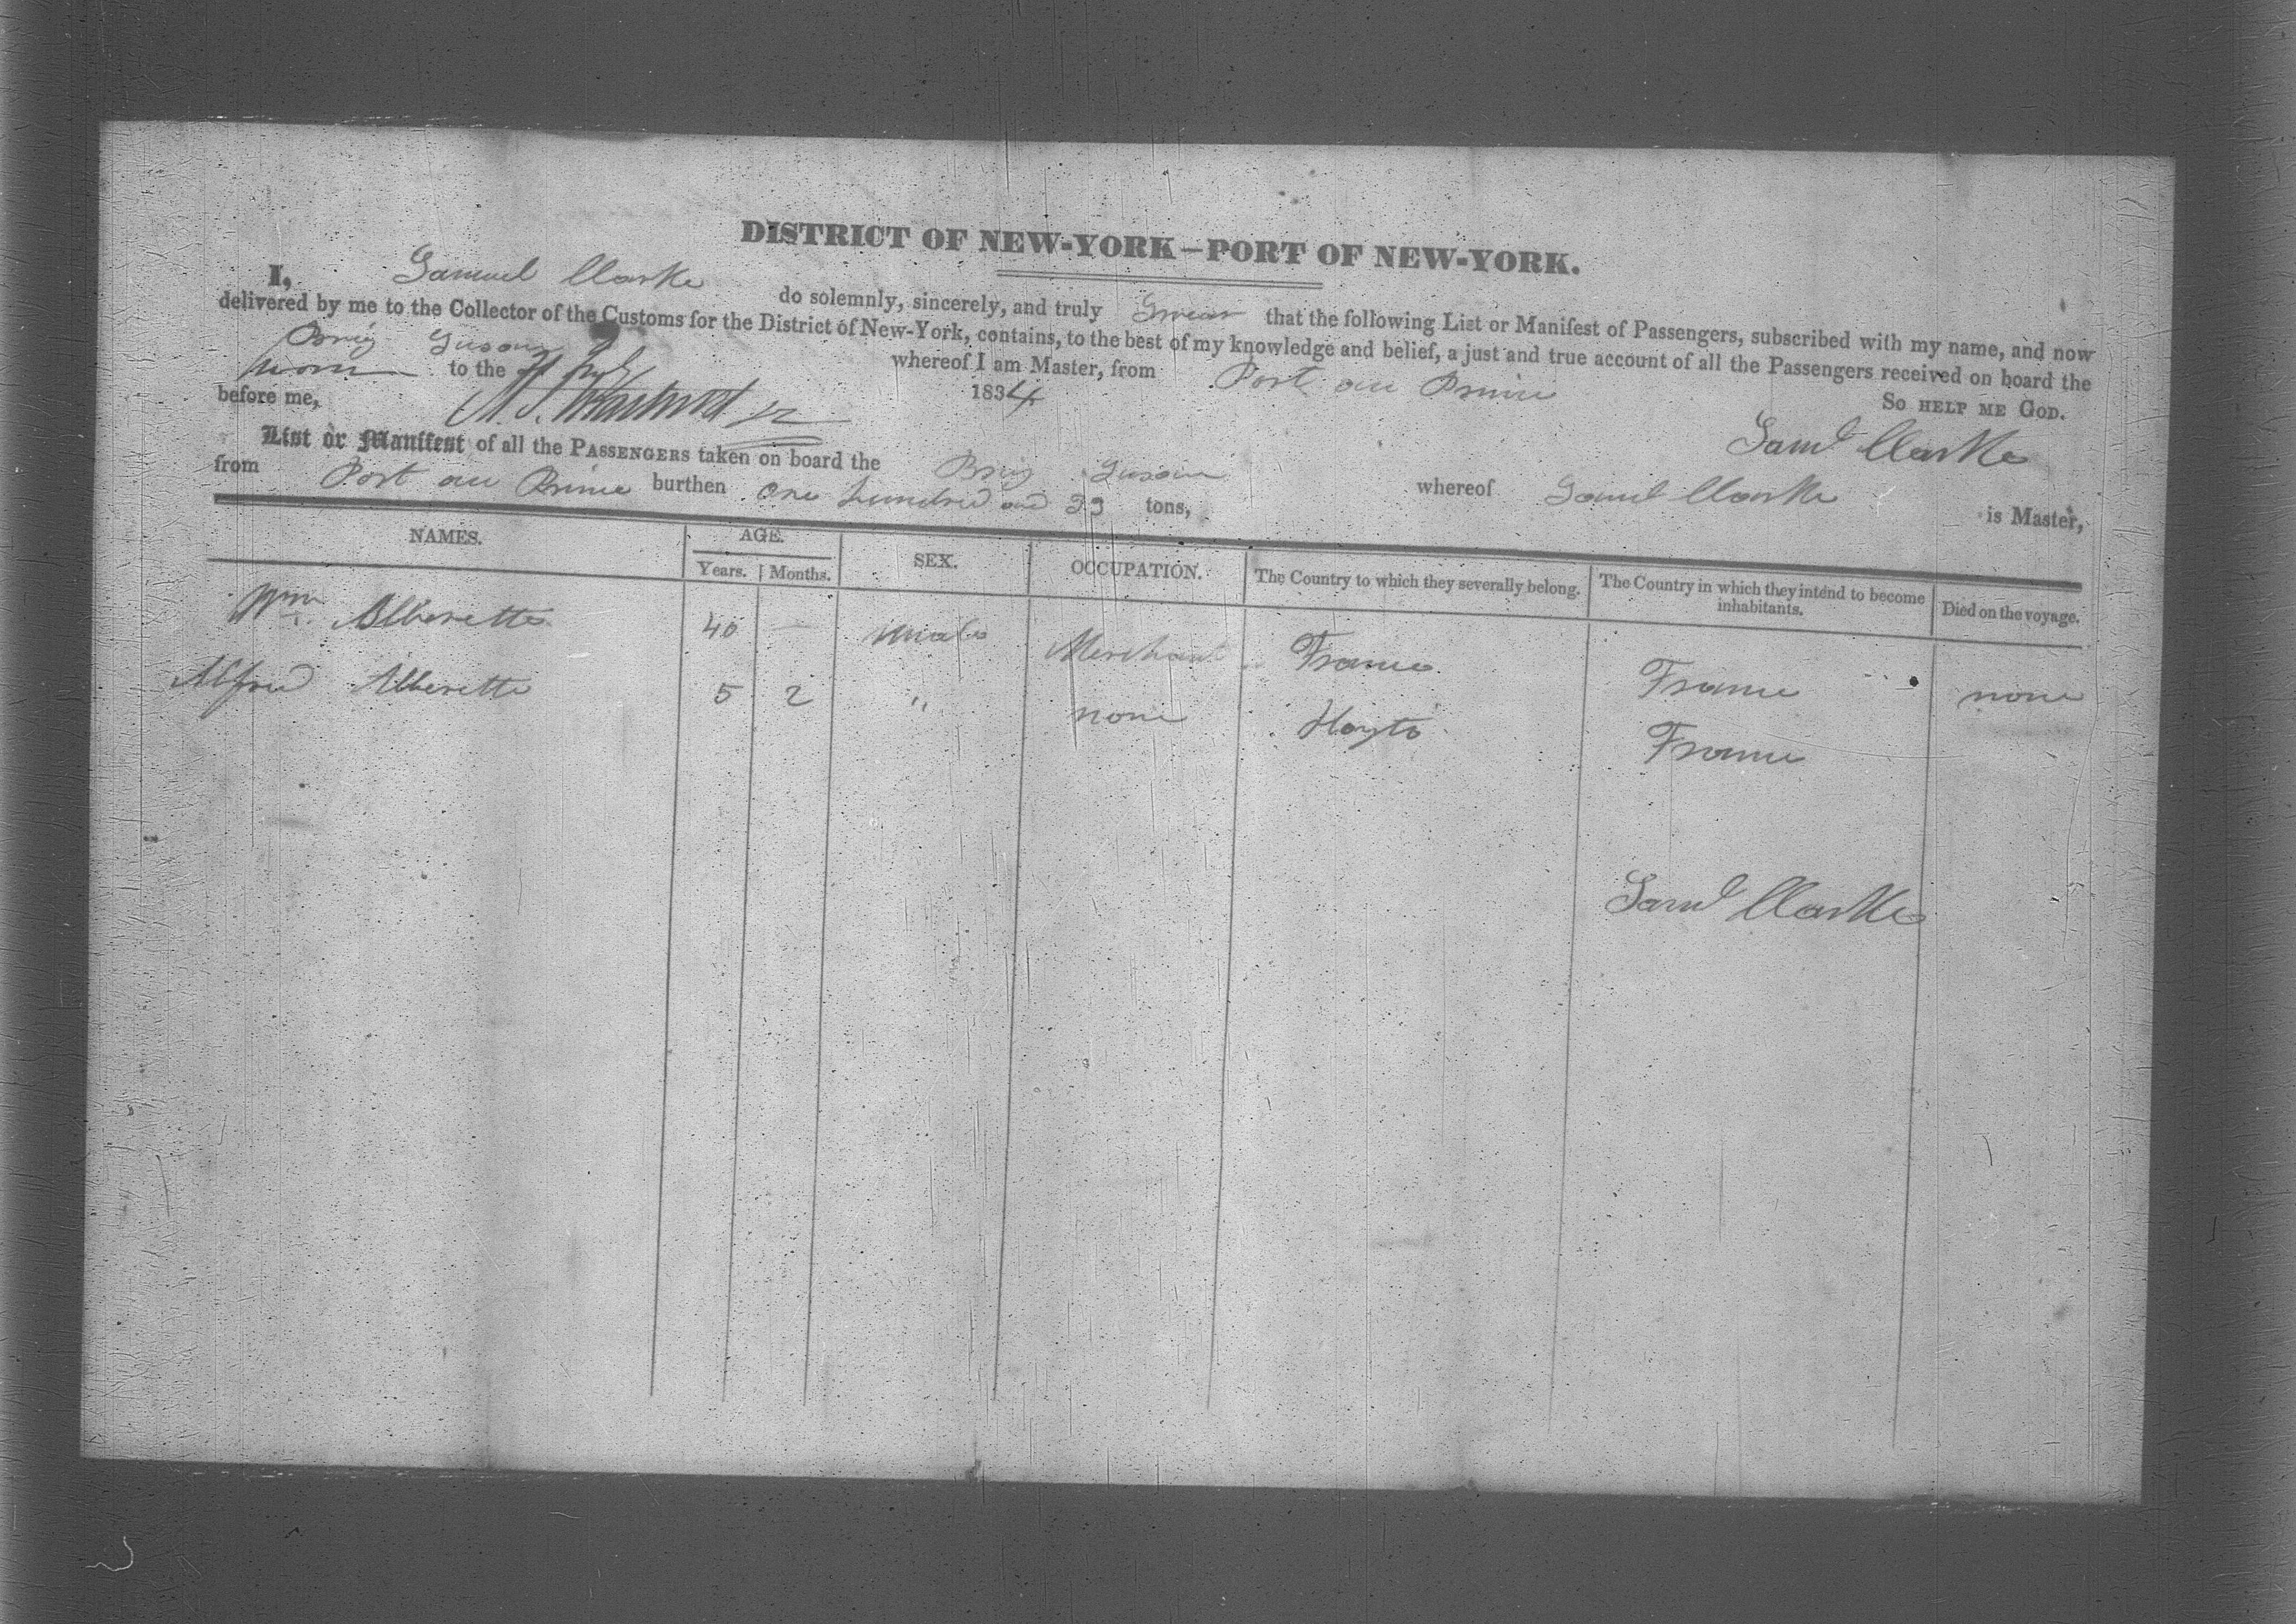 DISTRICT OF NEW-YORK—PORT OF NEW-YORK.
I, Samuel Clarke do solemnly, sincerely, and truly Swear that the following List or Manifest of Passengers, subscribed with my name, and now
delivered by me to the Collector of the Customs for the District of New-York, contains, to the best of my knowledge and belief, a just and true account of all the Passengers received on board the
Brig Susan whereof I am Master, from Port au Prince
Sworn to the 1834 So help me God.
before me, Saml Clarke
List or Manifest of all the Passengers taken on board the Brig Susan whereof Saml Clarke is Master,
from Port au Prince burthen One hundred and 33 tons,
NAMES. AGE. SEX. OCCUPATION. The Country to which they severally belong. The Country in which they intend to become inhabitants. Died on the voyage.
Years. Months.
Wm. Alberette 40 — male Merchant France France none
Alfred Alberette 5 2 " none Hayti France
Saml Clarke